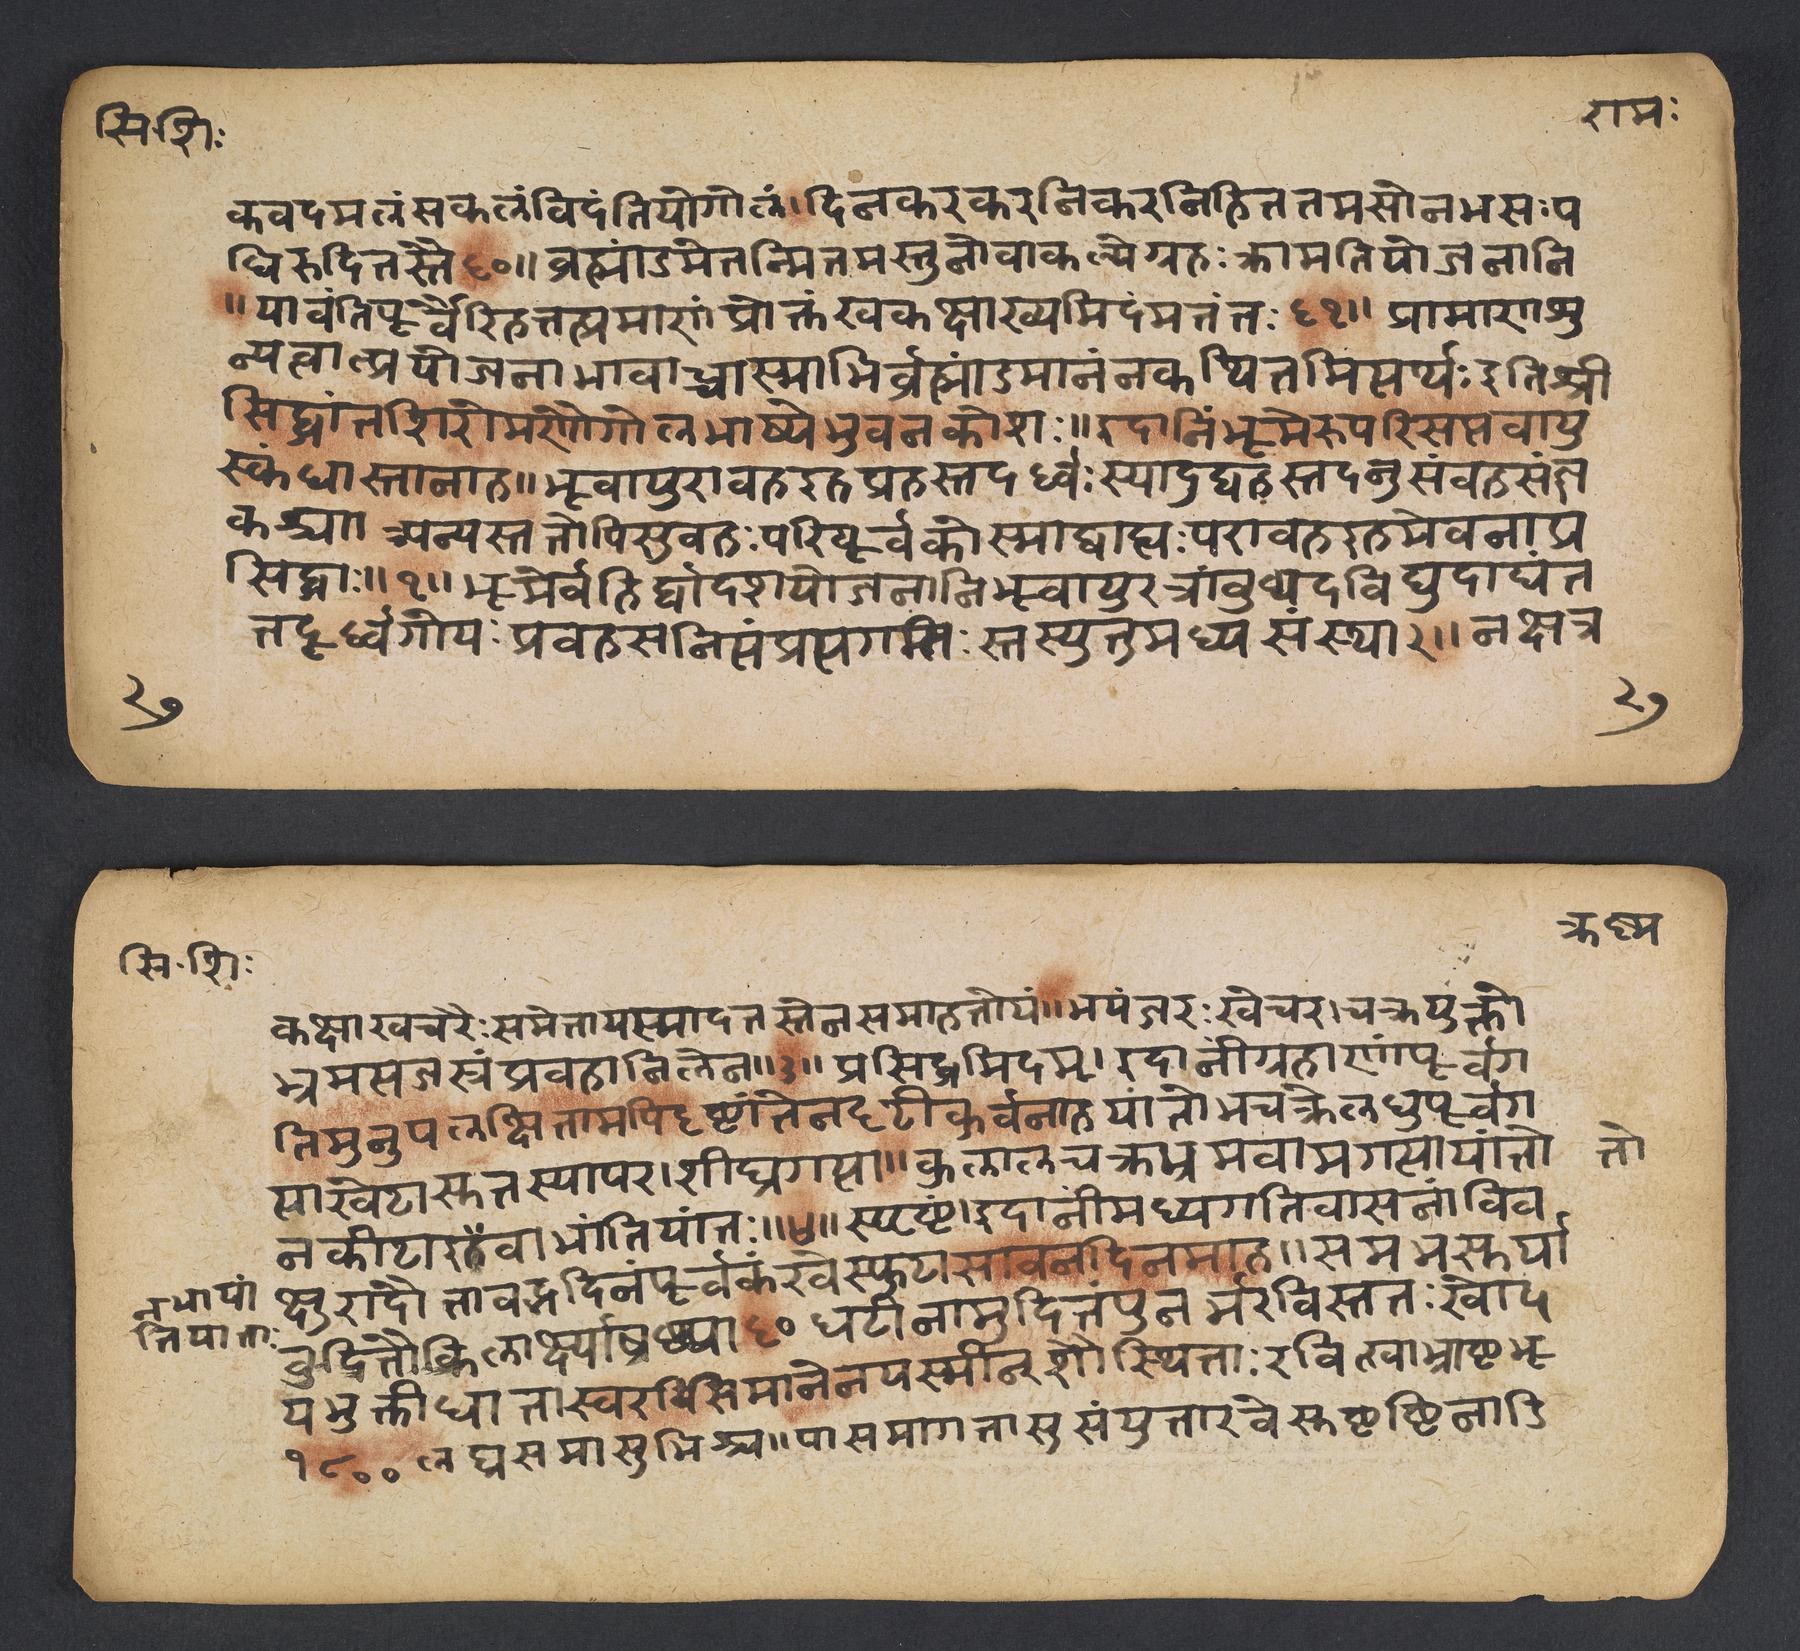 सि·शि:
रामः
कवदमलं सकलं विदंति यो गोलं। दिनकरकरनिकरनिहिततमसो नभसः प
धिरुदितस्तै ६०॥ ब्रह्मांडमेतन्मितमस्तु नो वा कल्पे ग्रहः क्रामति योजनानि
॥ यावंति पूर्वैरिह तत्प्रमाणां प्रोक्तं खकक्षाख्यमिदं मतं नः ६१॥ प्रामाणाशु
न्यत्वात्प्रयोजनाभावाच्चास्माभिर्ब्रह्मांडमानं न कथितमित्यर्थः इति श्री
सिद्धांतशिरोमणौ गोलभाष्ये भुवनकोशः॥ इदानिं भूमेरुपरि सप्तवायु
स्कंधास्तानाह॥ भूवायुरावह इह प्रवहस्तदर्ध्वः स्यादुद्वहस्तदनु संवहसंज्ञ
कश्च॥ अन्यस्ततोपि सुवहः परिपूर्वकोस्माद्बाह्यः परावह इहमेवना प्र
सिद्धाः॥१॥ भूमेर्बहिर्द्वादशयोजनानि भूवायुरत्रांबुध्यदविद्युदाद्यं त
तदूर्ध्वगोयः प्रवहस नित्यं प्रत्यगगतिः स्तस्युतुमध्यसंस्थार॥ नक्षत्र
२७
२७
सि·शि:
कृष्ण
कक्षाखचरैः समेतायस्मादतस्तेन समाहतोयं॥ भपंजरः खेचर।चक्रयुक्तो
भ्रमत्यजस्त्रं प्रवहानिलेन॥३॥ प्रसिद्धमिदम्। इदानीं ग्रहाणां पूर्वग
तिमुनुपलक्षितामपि दृष्टांतेन दृढीकुर्वनाह यांतो भचक्रे लघुपूर्वग
त्या खेटास्तु तस्यापर।शीघ्रगत्या॥ कुलालचक्रभ्रमवामगत्या यांतो
तो
न कीटा इवैवाभांति यांतः॥४॥ स्पष्टं। इदानीं मध्यगतिवासनां विव
क्षुरादौ तावद्भदिनं पूर्वकं रवे स्फुटा सावनदिनमाह॥ समभस्तर्या
वुदितौ किलार्क्ष्या ६० घटीनामुदितं पुनर्भरविस्ततः खोद
यभुक्तीघातास्वराशिमानेन यस्मीन् शौ स्थिताः रवि खाभ्राष्टभू
१८०० लब्धसमासुभिश्च॥ या समागतासु संयुतारवेस्तु षष्टिनाडि